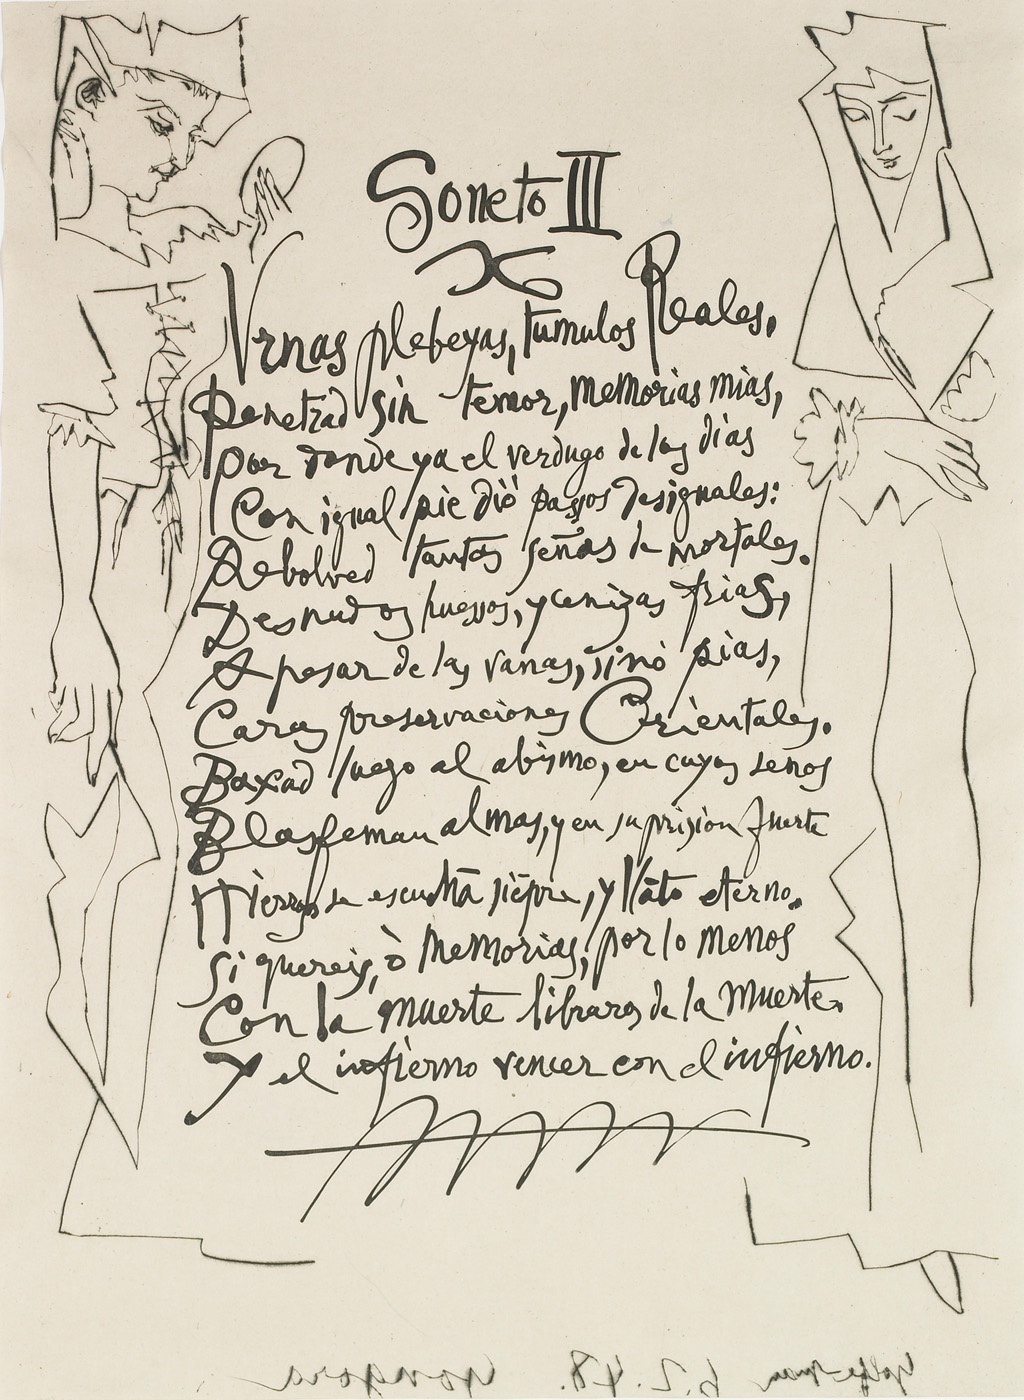 Soneto III
Vrnas plebeyas, tumulos Reales,
Penetrad sin temor, memorias mias,
Por donde ya el verdugo de los dias
Con igual pie diò passos desiguales:
Rebolved tantas señas de mortales.
Desnudos huessos, y cenizas frias,
A pesar de las vanas, sinò pias,
Caras preservaciones Orientales.
Baxad luego al abismo, en cuyos senos
Blasfeman almas, y en su prision fuerte
Hierros se escuchã siẽpre, y llãto eterno.
Si quereis, ò memorias, por lo menos
Con la muerte libraros de la muerte.
Y el infierno vencer con el infierno.
6.2.48. Gongora